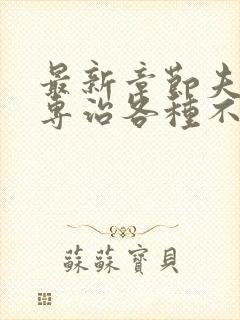 最新章節夫
專治各種不
蘇蘇寶貝